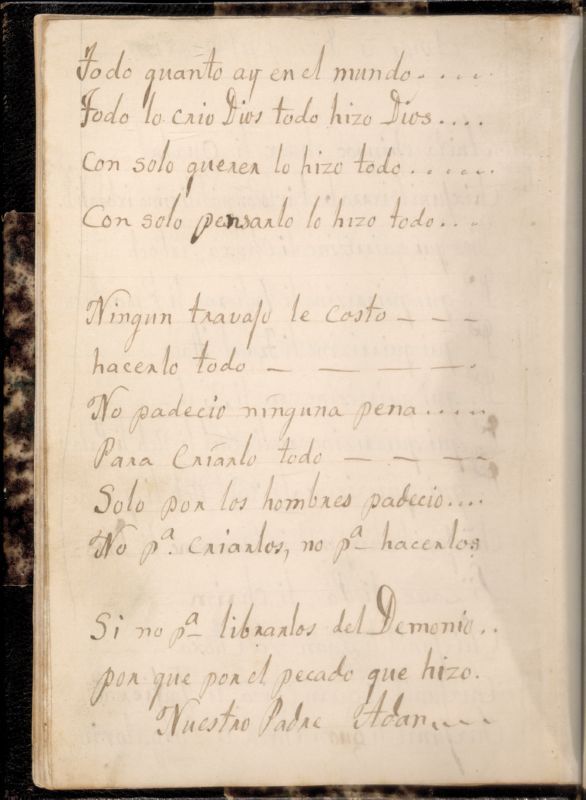 Todo quanto ay en el mundo.....
Todo lo crio Dios todo hizo Dios....
Con solo querer lo hizo todo......
Con solo pensarlo lo hizo todo....
Ningun travajo le costo – – –
hacerlo todo – – – – –.
No padecio ninguna pena.....
Para Criarlo todo – – – –
Solo por los hombres padecio....
No pª. criarlos, no pª hacerlos
Si no pª librarlos del Demonio..
por que por el pecado que hizo.
Nuestro Padre Adan....